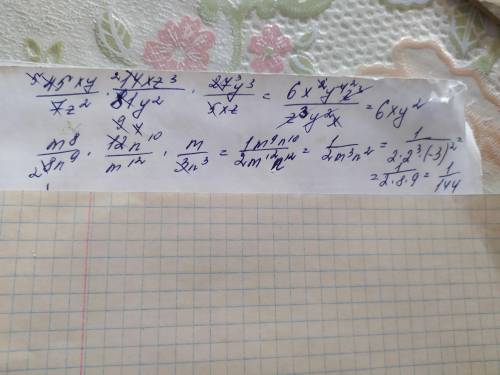 45xy/7z² · 14xz³/81y² · 27y³/5xz = 6x²y⁴z³/z³y²x = 6xy²
m⁸/8n⁹ · 12n¹⁰/m¹² · m/3n³ = 1m⁹n¹⁰/2m¹²n¹² = 1/2m³n² = 1/2·2³·(-3)² =
= 1/2·8·9 = 1/144